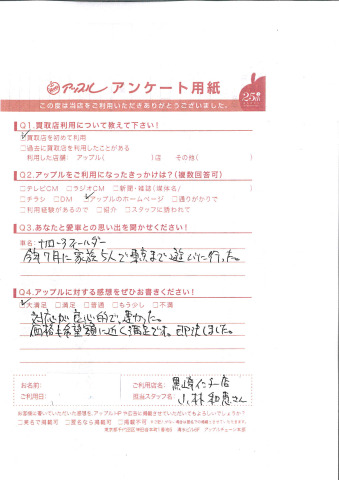 アップル アンケート用紙
25th
この度は当店をご利用いただきありがとうございました。
Q1.買取店利用について教えて下さい!
☑買取店を初めて利用
□過去に買取店を利用したことがある
利用した店舗: アップル( )店 その他( )
Q2.アップルをご利用になったきっかけは?(複数回答可)
□テレビCM □ラジオCM □新聞・雑誌(媒体名/ )
□チラシ □DM ☑アップルのホームページ □通りがかりで
□利用経験があるので □紹介 □スタッフに誘われて
Q3.あなたと愛車との思い出を聞かせください!
車名:
今年7月に家族5人で東京まで遊びに行った。
Q4.アップルに対する感想をぜひお書きください!
☑大満足 □満足 □普通 □もう少し □不満
対応が良心的で、良かった。
価格も希望額に近く満足です。即決しました。
お名前:
ご利用日:
ご利用店名: 黒崎インター店
担当スタッフ名: 小林和貴さん
※お客様に書いていただいた感想を、アップルHPや広告に掲載させていただいてもよろしいでしょうか?
□実名で掲載可 □匿名なら掲載可 □掲載不可